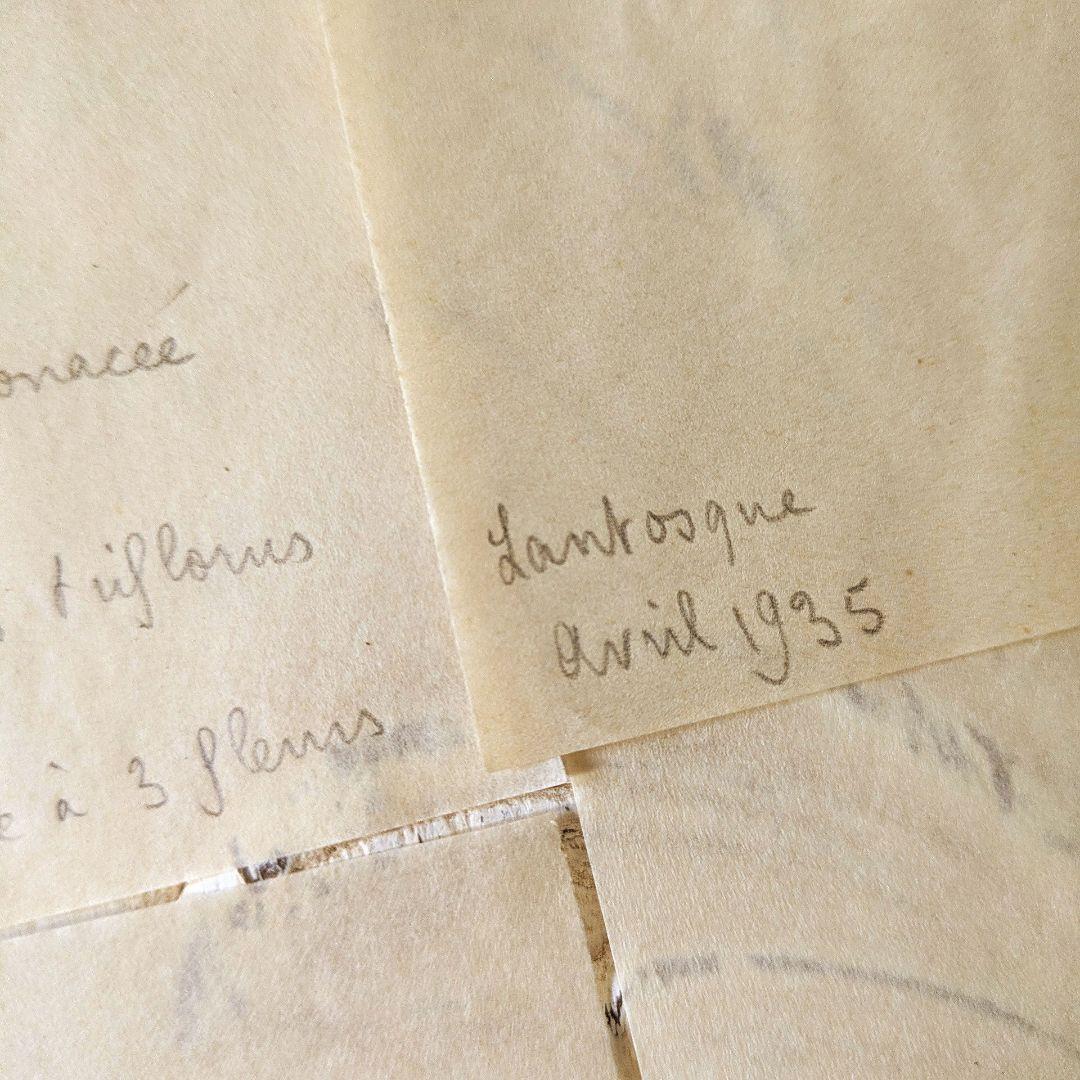 onacée
triflorus
e à 3 fleurs
Lantosque
avril 1935